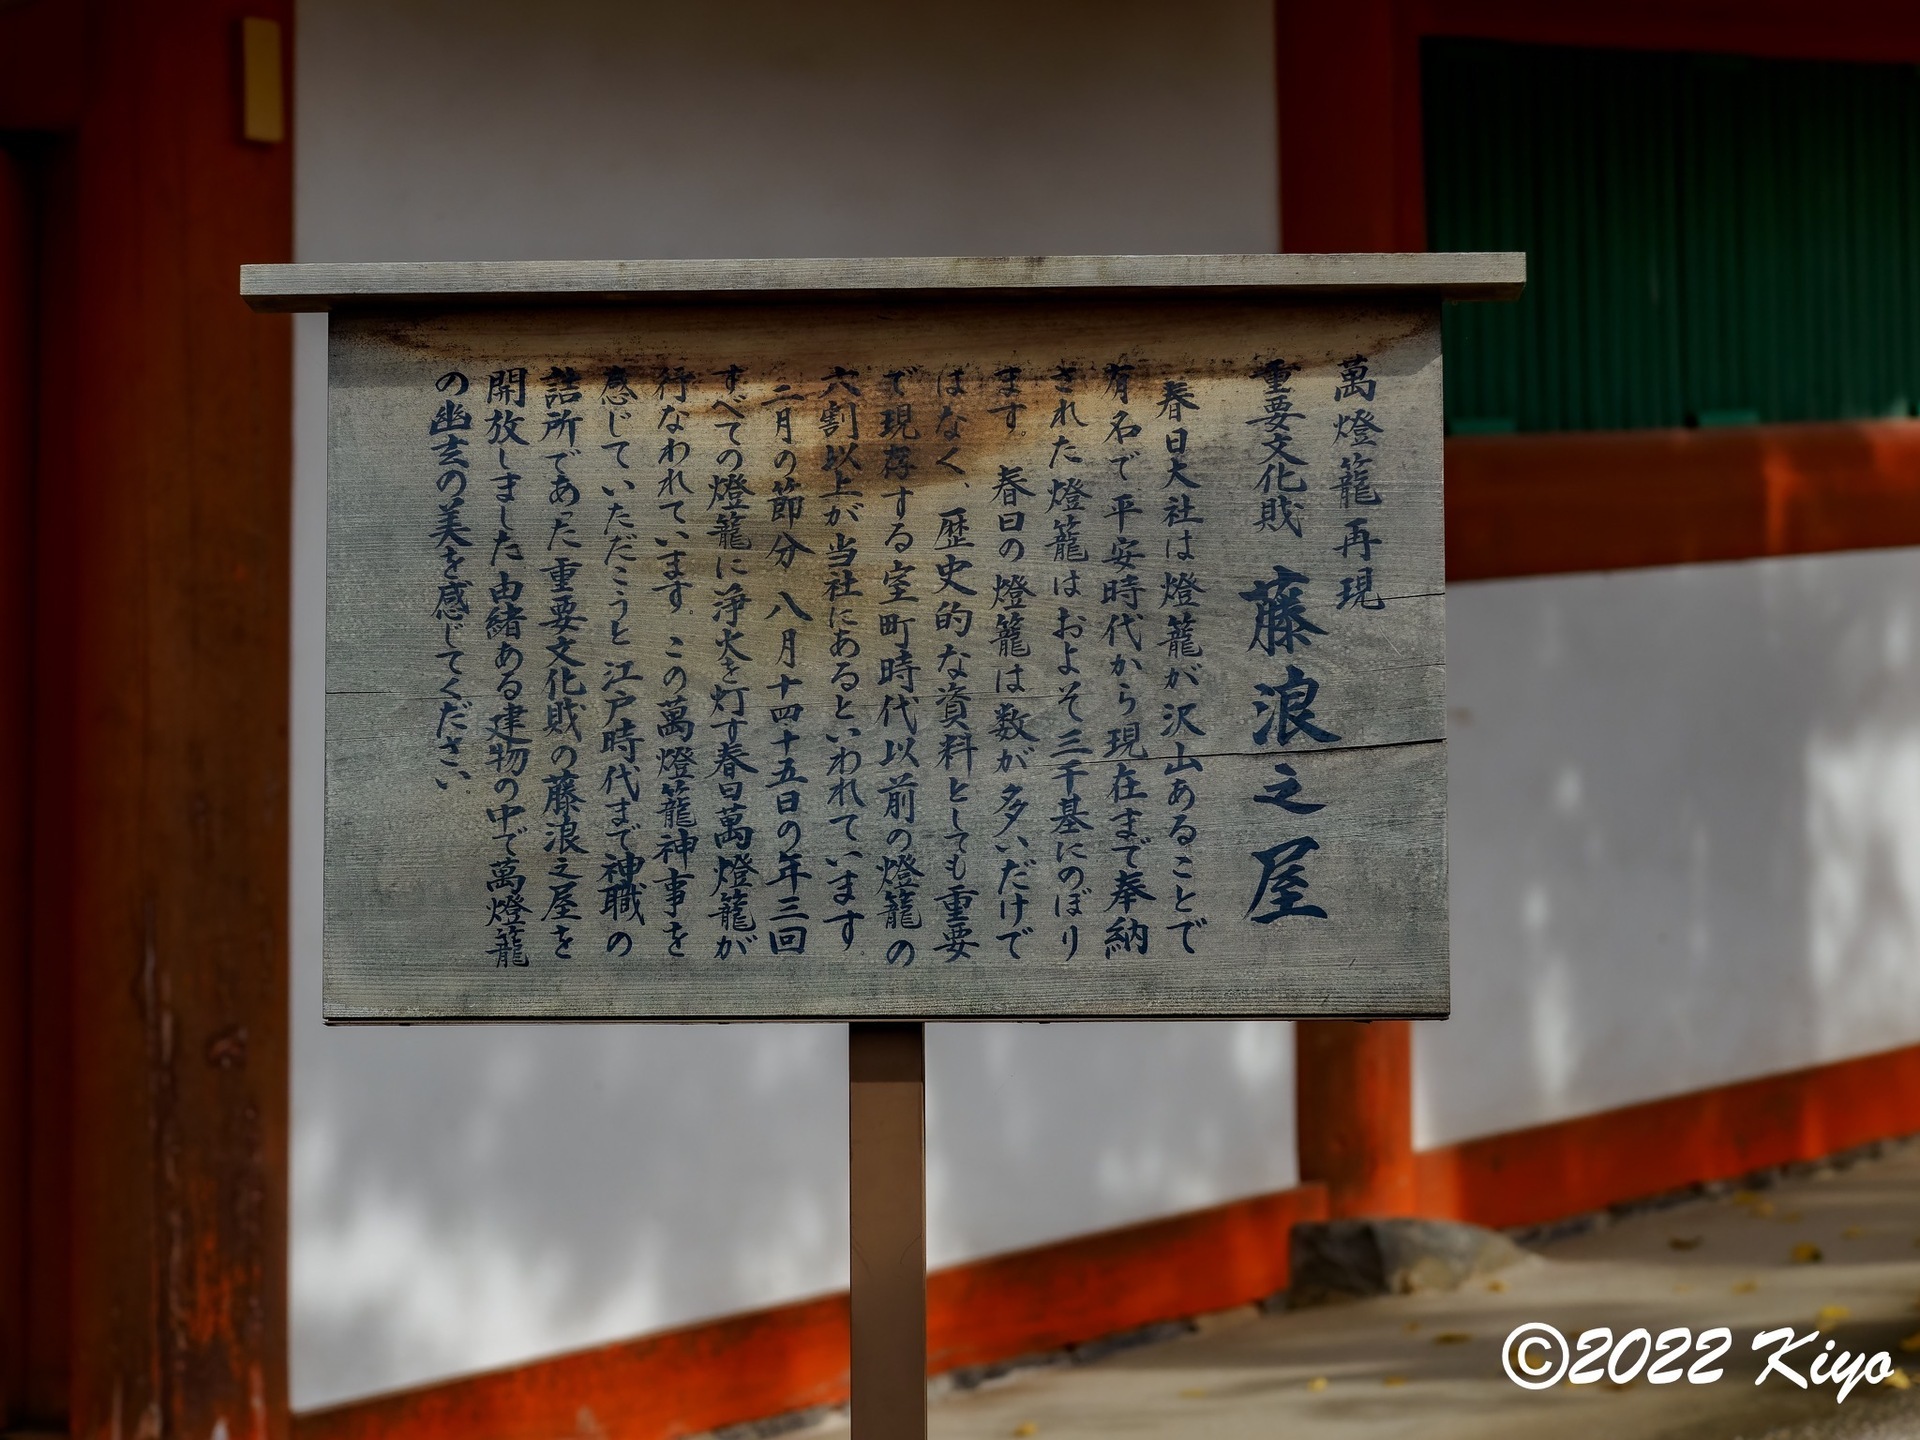 萬燈籠再現
重要文化財 藤浪之屋
春日大社は燈籠が沢山あることで
有名で平安時代から現在まで奉納
された燈籠はおよそ三千基にのぼり
ます。春日の燈籠は数が多いだけで
はなく、歴史的な資料としても重要
で現存する室町時代以前の燈籠の
六割以上が当社にあるといわれています
二月の節分 八月十四十五日の年三回
すべての燈籠に浄火を灯す春日萬燈籠が
行なわれています。この萬燈籠神事を
感じていただこうと江戸時代まで神職の
詰所であった重要文化財の藤浪之屋を
開放しました由緒ある建物の中で萬燈籠
の幽玄の美を感じてください。
©2022 Kiyo